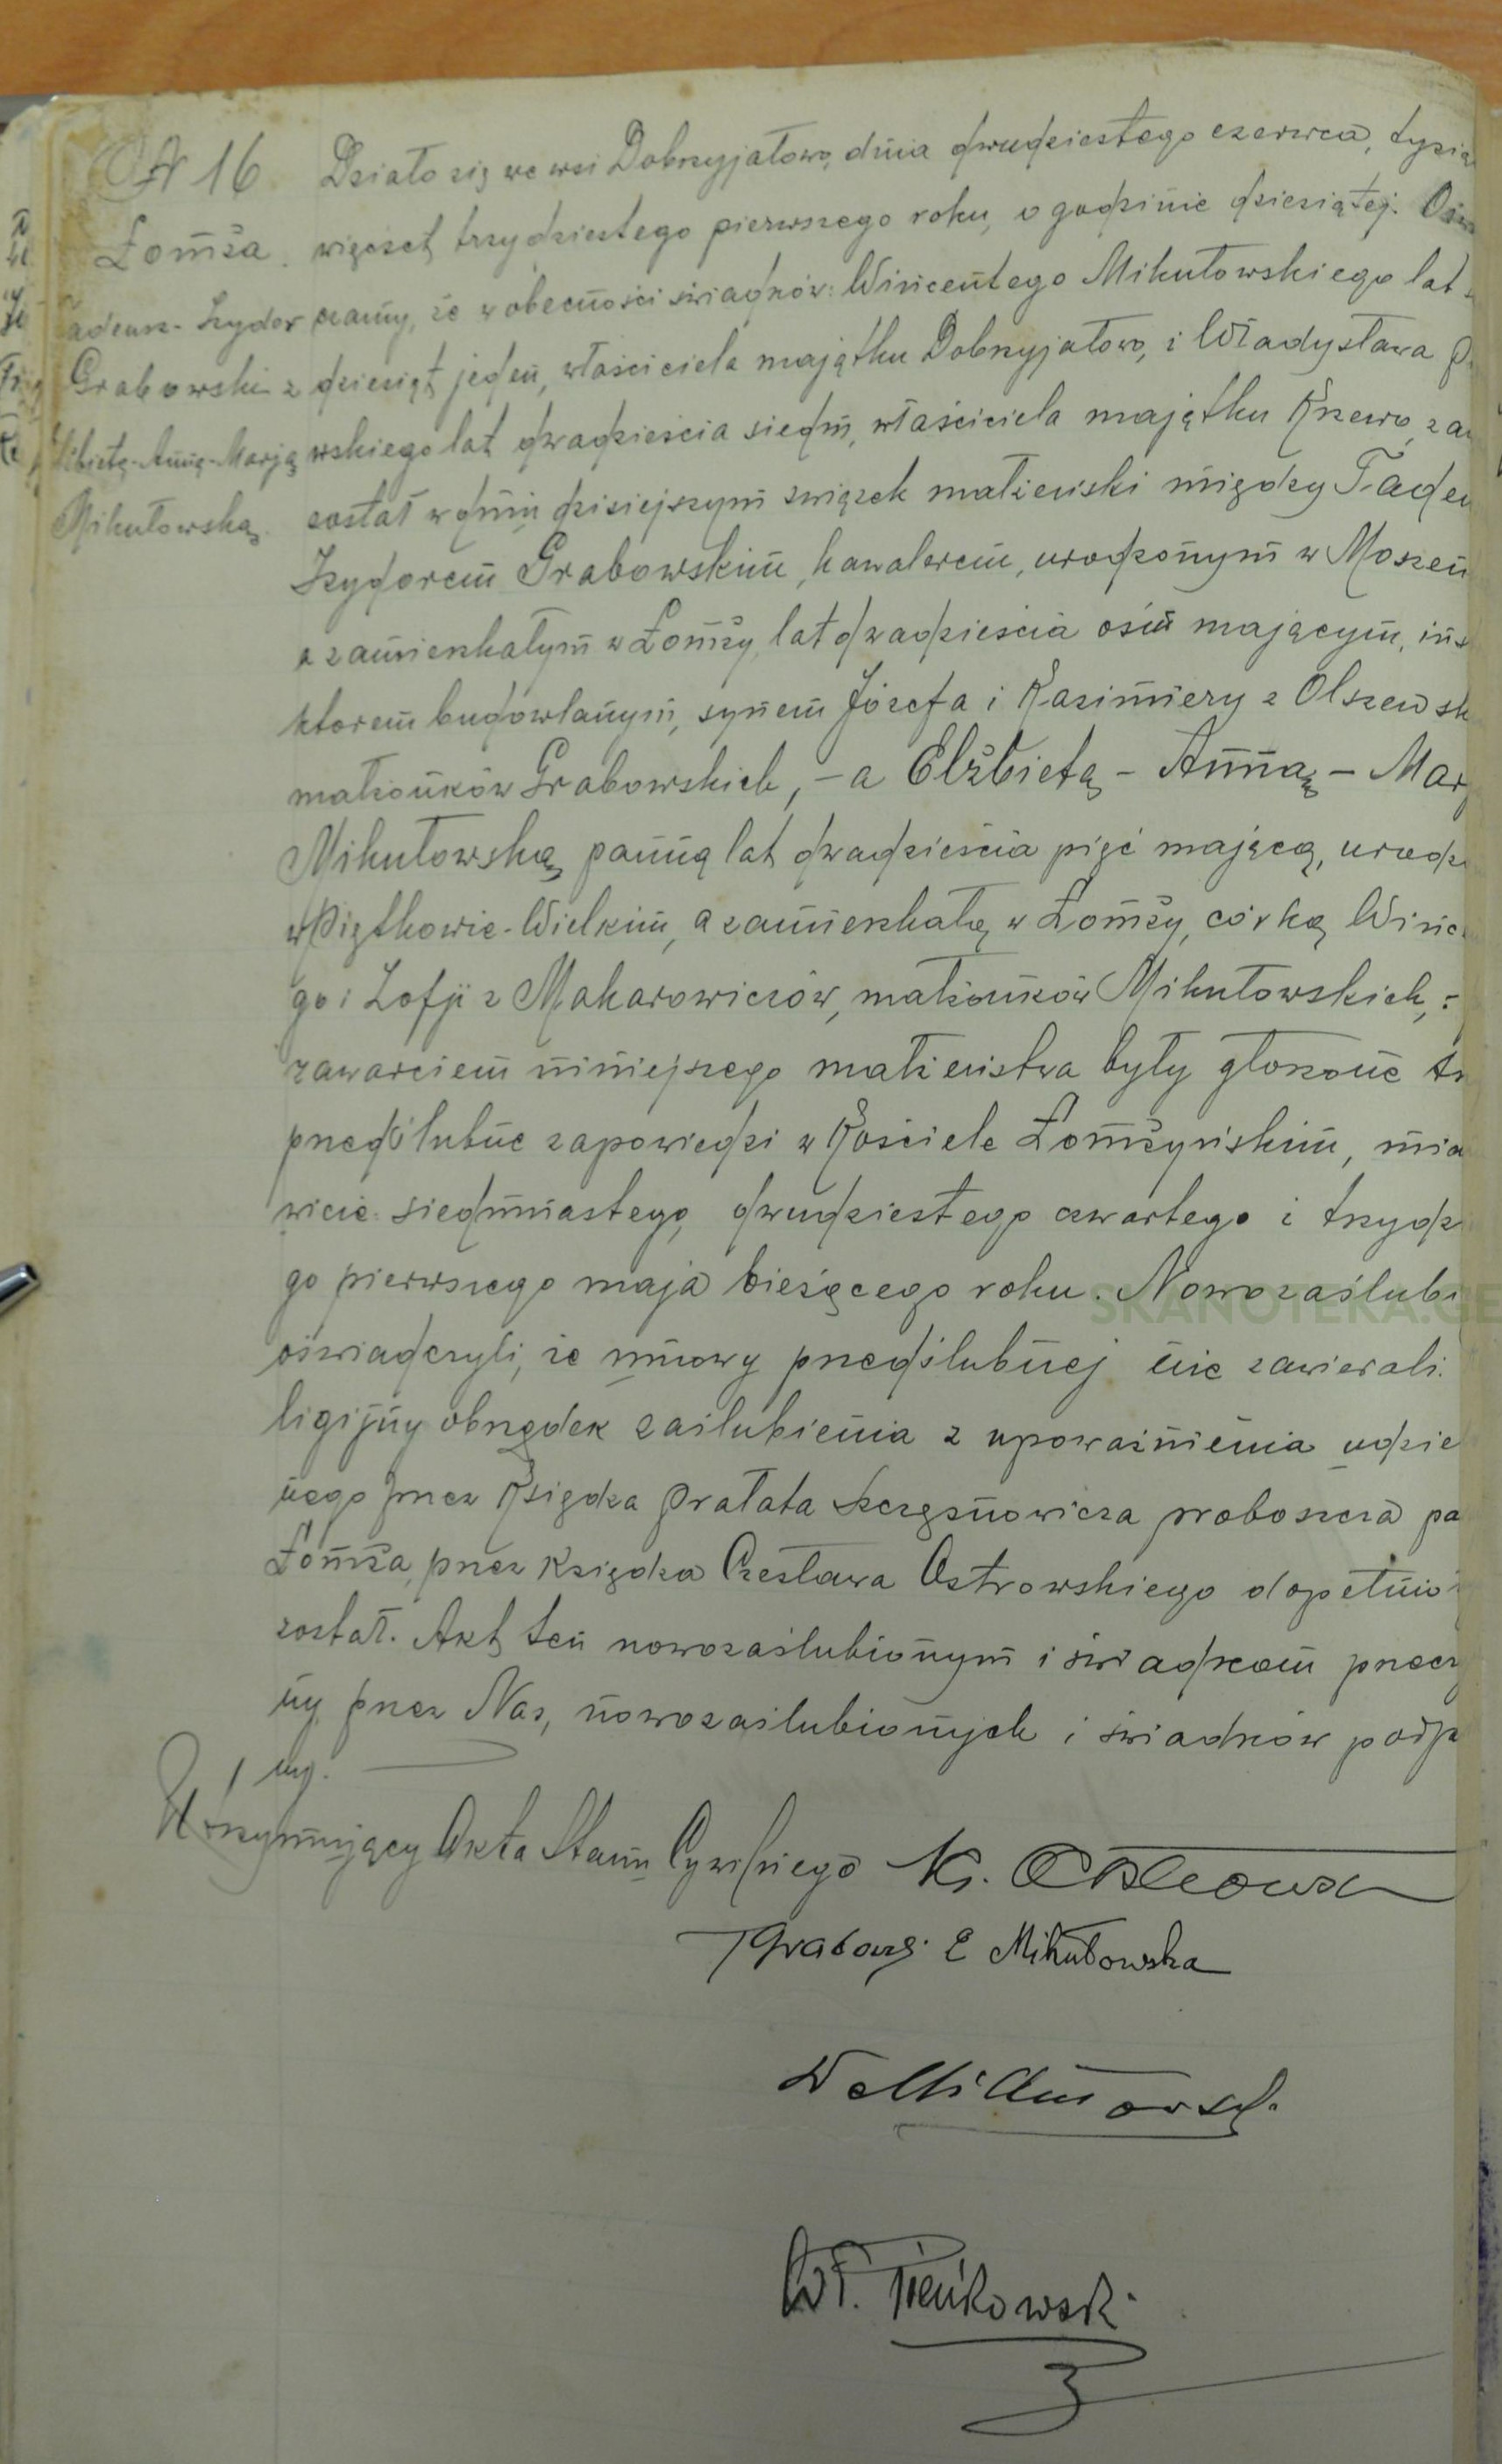 N 16
Łomża.
Tadeusz-Izydor
Grabowski z
Elżbietą-Anną-Marją
Mikutowską.
Działo się we wsi Dobrzyjałowo, dnia dwudziestego czerwca, tysią
więcset trzydziestego pierwszego roku, o godzinie dziesiątej.
czamy, że w obecności świadków: Wincentego Mikutowskiego lat
dziesiąt jeden, właściciela majątku Dobrzyjałowo, i Władysława
wskiego lat dwadzieścia siedm, właściciela majątku Krzewo, za
został w dniu dzisiejszym związek małżeński między Tadeu
Izydorem Grabowskim, kawalerem, urodzonym w Moszen
a zamieszkałym w Łomży, lat dwadzieścia ośm mającym, ins
ktorem budowlanym, synem Józefa i Kazimiery z Olszewsk
małżonków Grabowskich, - a Elżbietą - Anną - Mar
Mikutowską, panną lat dwadzieścia pięć mającą, urodz
w Piętkowie-Wielkim, a zamieszkałą w Łomży, córką Wince
go i Zofji z Makarowiczów, małżonków Mikutowskich,
zawarciem niniejszego małżeństwa były głoszone tr
przedślubne zapowiedzi w Kościele Łomżyńskim, mia
wicie: siedmnastego, dwudziestego czwartego i trzydz
go pierwszego maja bieżącego roku. Nowozaślubi
oświadczyli, że umowy przedślubnej nie zawierali.
ligijny obrzędek zaślubienia z upoważnienia udzie
nego przez Księdza Prałata Szczęsnowicza proboszcza pa
Łomża, przez Księdza Czesława Ostrowskiego dopełnio
został. Akt ten nowozaślubionym i świadkom przecz
ny przez Nas, nowozaślubionych i świadków podp
ny.
Utrzymujący Akta Stanu Cywilnego Ks. C Ostrowski
T Grabowski E Mikutowska
W Mikutowski
Wł. Pieńkowski
SKANOTEKA.GE